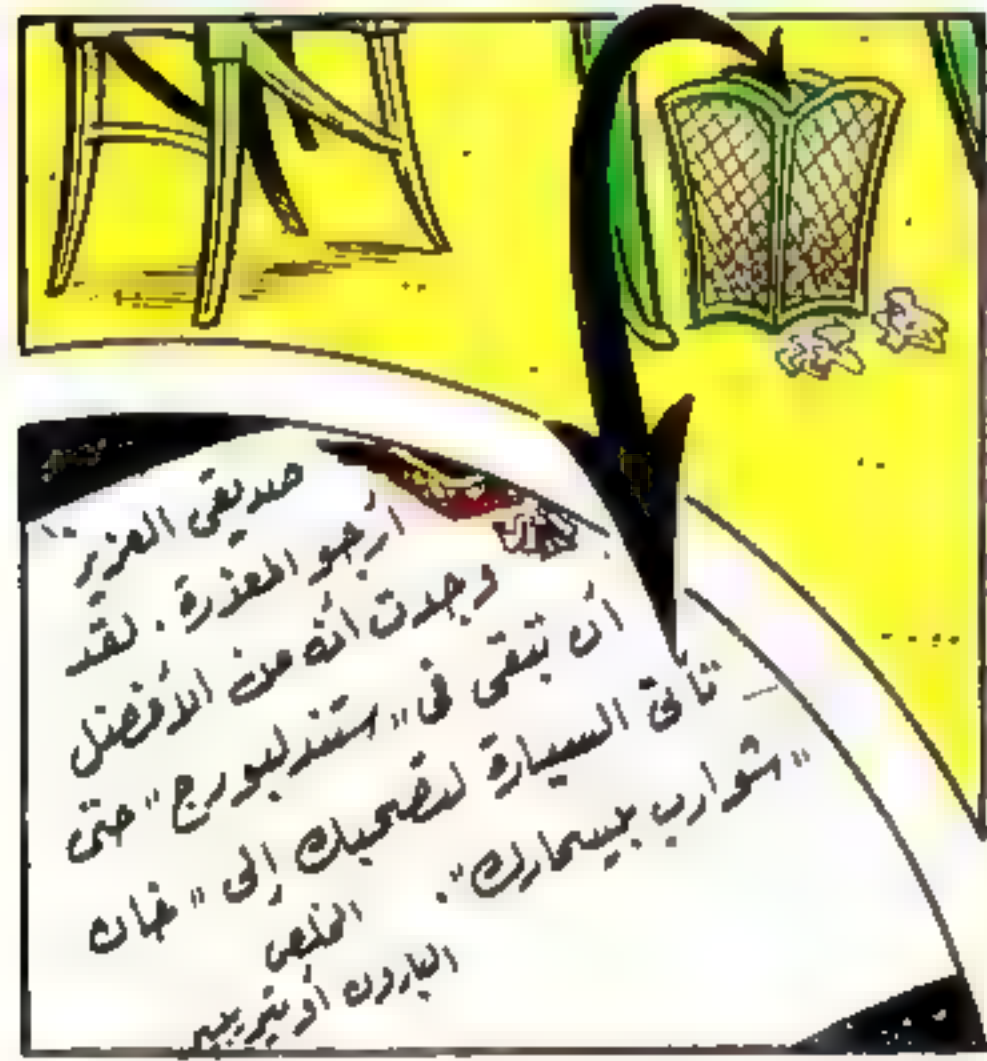 صديقى العزيز
أرجو المعذرة. لقد
وجدت أنه من الأفضل
أن تبقى فى "ستندلبورج" حتى
تأتى السيارة لتصحبك إلى "خان
"شوارب بيسمارك".
المخلص
البارون